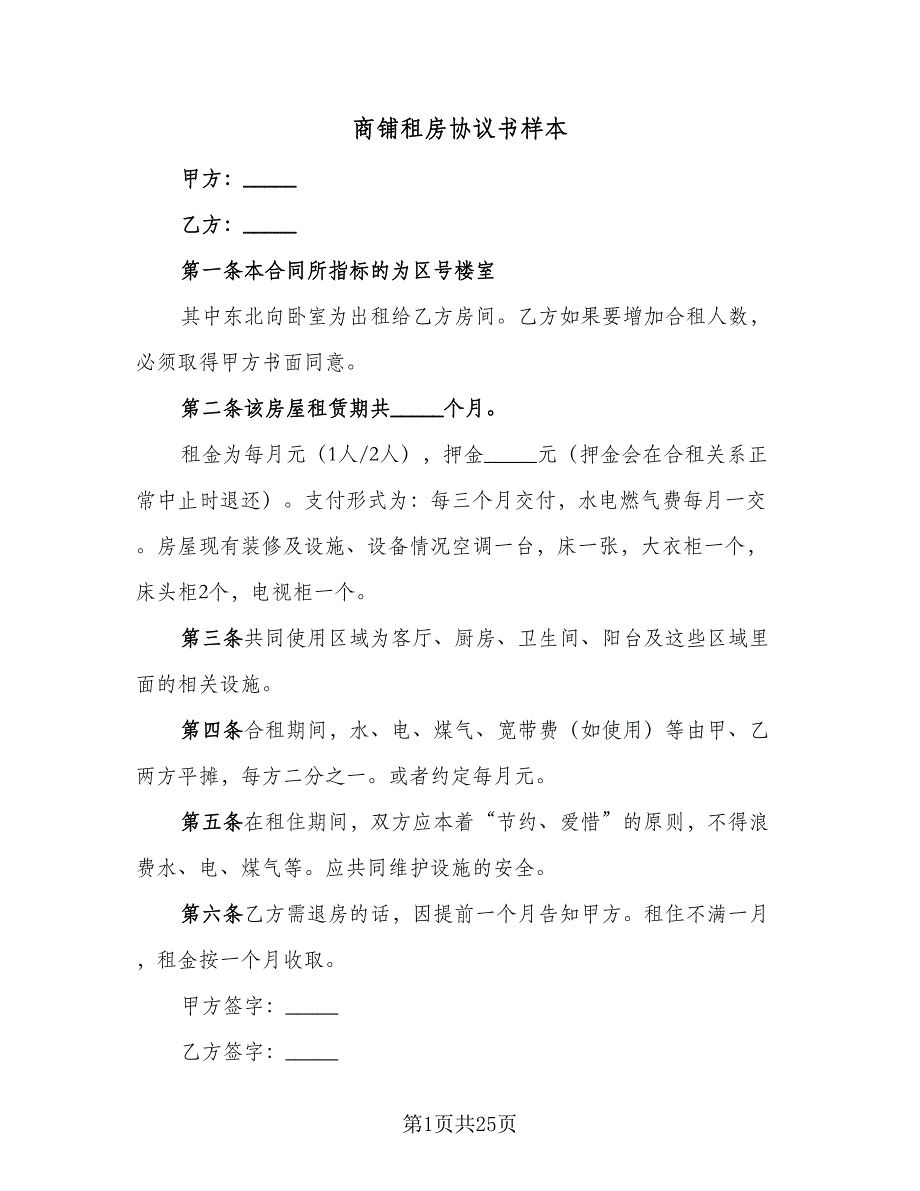 商铺租房协议书样本
甲方：_____
乙方：_____
第一条本合同所指标的为区号楼室
其中东北向卧室为出租给乙方房间。乙方如果要增加合租人数，
必须取得甲方书面同意。
第二条该房屋租赁期共_____个月。
租金为每月元（1人/2人），押金_____元（押金会在合租关系正
常中止时退还）。支付形式为：每三个月交付，水电燃气费每月一交
。房屋现有装修及设施、设备情况空调一台，床一张，大衣柜一个，
床头柜2个，电视柜一个。
第三条共同使用区域为客厅、厨房、卫生间、阳台及这些区域里
面的相关设施。
第四条合租期间，水、电、煤气、宽带费（如使用）等由甲、乙
两方平摊，每方二分之一。或者约定每月元。
第五条在租住期间，双方应本着“节约、爱惜”的原则，不得浪
费水、电、煤气等。应共同维护设施的安全。
第六条乙方需退房的话，因提前一个月告知甲方。租住不满一月
，租金按一个月收取。
甲方签字：_____
乙方签字：_____
第1页共25页